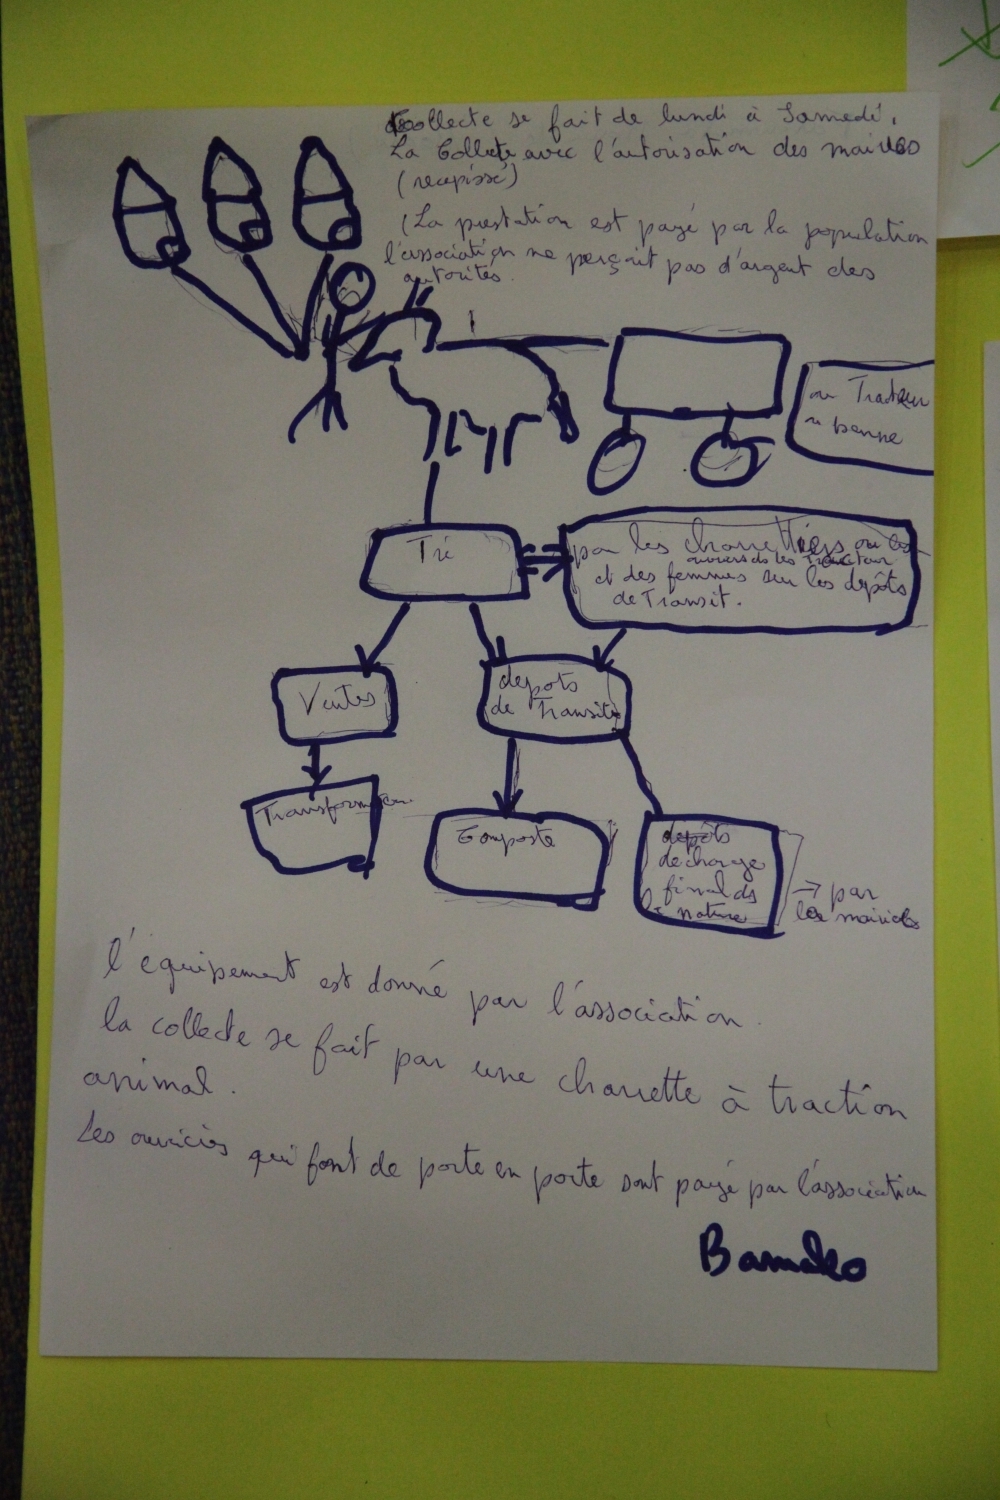 collecte se fait de lundi à Samedi.
La Collecte avec l'autorisation des mairies
(recepissé)
(La prestation est payé par la population
l'association ne perçoit pas d'argent des
autorités.
ou Tracteur
benne
Tri
par les charettiers ou les
ouvriers de les Tracteur
et des femmes sur les depôts
de Transit.
Ventes
depots
de Transite
Transformation
Composte
depôts
decharge
final ds
la nature
→ par
les mairies
l'équipement est donné par l'association.
la collecte se fait par une charrette à traction
animal.
Les ouvriers qui font de porte en porte sont payé par l'association
Bamako